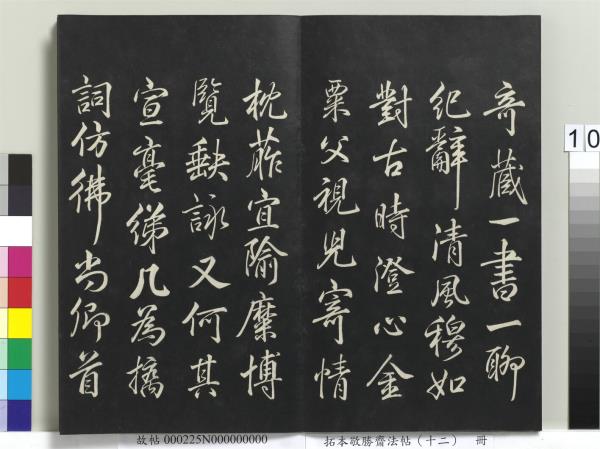 奇藏一書一聊
紀辭清風穆如
對古時澄心金
粟父視兒寄情
枕蓱宜隃糜博
覽缺詠又何其
宣毫綈几為摛
詞仿彿尚卿首
10
故帖000225N000000000
拓本敬勝齋法帖（十二） 冊